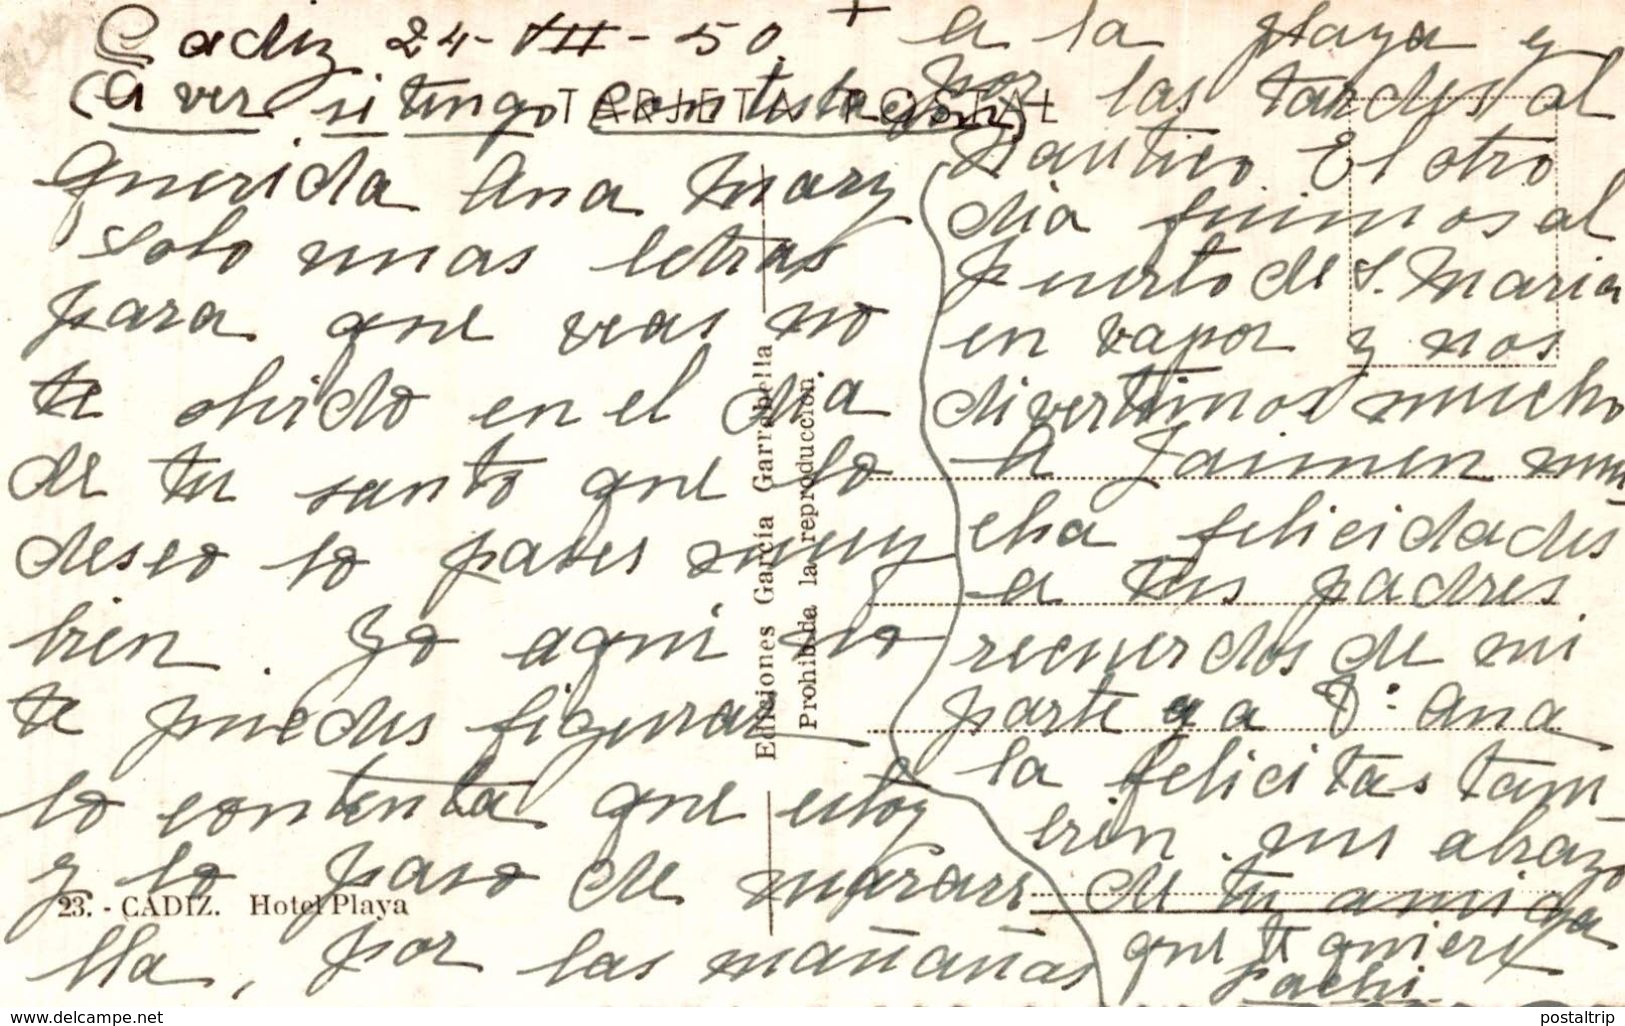 Cadiz 24-VII-50.
(A ver si tengo contestacion)
TARJETA POSTAL
Querida Ana Mary
Solo unas letras
para que veas no
te olvido en el dia
de tu santo que lo
deseo lo pases muy
bien. Yo aqui no
te puedes figurar
lo contenta que estoy
y lo paso de mararavi
lla, por las mañanas
+ a la playa y
por las tardes al
Nautico. El otro
dia fuimos al
Puerto de S. Maria
en vapor y nos
divertimos mucho
A Jaimen mu
cha felicidades
a tus padres
recuerdos de mi
parte y a Dª Ana
la felicitas tam
bien. un abrazo
de tu amiga
que te quiere
Pachi
Ediciones García Garrabella
Prohibida la reproducción.
23. - CADIZ. Hotel Playa
www.delcampe.net
postaltrip